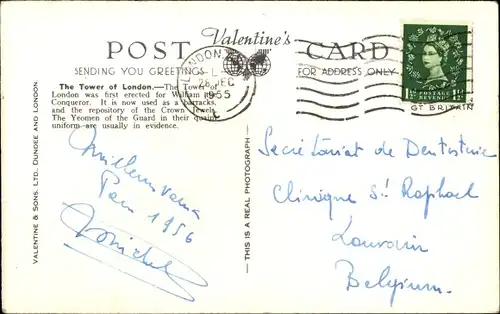 POST Valentine's CARD
SENDING YOU GREETINGS
FOR ADDRESS ONLY
LONDON
28 DEC
1955
POSTAGE REVENUE
GT BRITAIN
The Tower of London.—The Tower of
London was first erected for William the
Conqueror. It is now used as a barracks,
and the repository of the Crown Jewels.
The Yeomen of the Guard in their quaint
uniform are usually in evidence.
VALENTINE & SONS, LTD. DUNDEE AND LONDON.
THIS IS A REAL PHOTOGRAPH
Meilleurs vœux
Pour 1956
Secrétariat de Dentisterie
Clinique St Raphael
Louvain
Belgium.